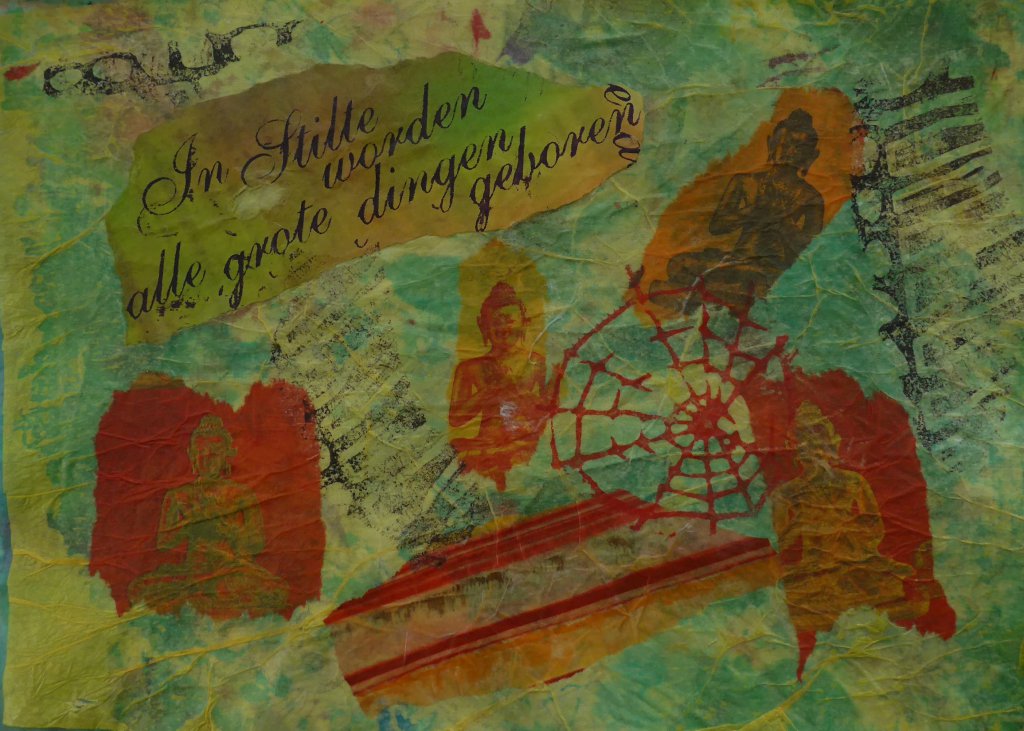 In Stilte
worden
alle grote dingen
geboren